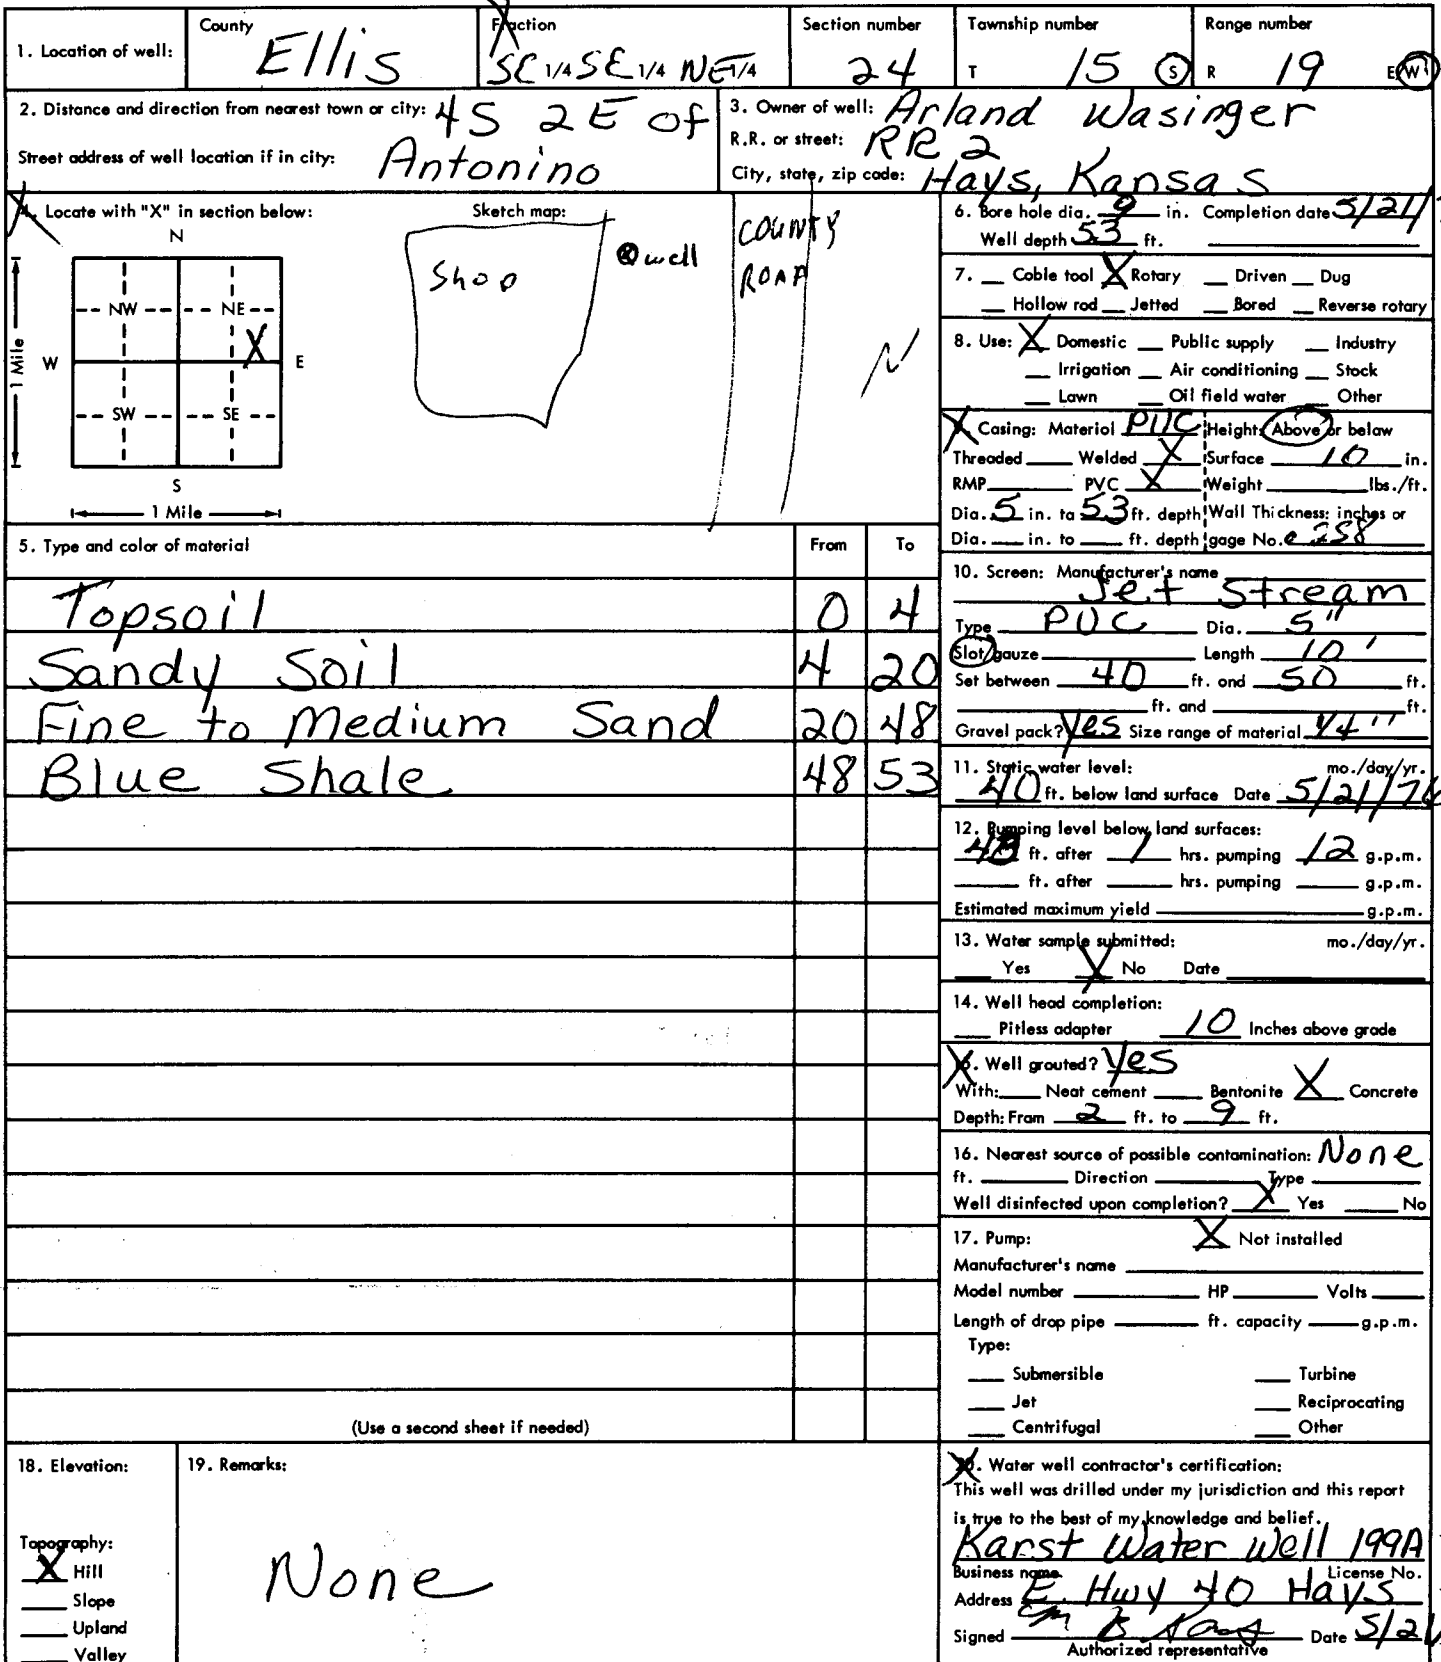 1. Location of well:
County
Ellis
Fraction
SE 1/4 SE 1/4 NE 1/4
Section number
24
Township number
T 15 S
Range number
R 19 E W
2. Distance and direction from nearest town or city: 4S 2E of
Street address of well location if in city: Antonino
3. Owner of well: Arland Wasinger
R.R. or street: RR 2
City, state, zip code: Hays, Kansas
4. Locate with "X" in section below:
Sketch map:
N
NW NE
X
W E
SW SE
S
1 Mile
1 Mile
Shop
well
COUNTY
ROAD
N
5. Type and color of material From To
Topsoil 0 4
Sandy Soil 4 20
Fine to Medium Sand 20 48
Blue Shale 48 53
(Use a second sheet if needed)
6. Bore hole dia. 9 in. Completion date 5/21/
Well depth 53 ft.
7. Cable tool X Rotary Driven Dug
Hollow rod Jetted Bored Reverse rotary
8. Use: X Domestic Public supply Industry
Irrigation Air conditioning Stock
Lawn Oil field water Other
Casing: Material PVC Height: Above or below
Threaded Welded X Surface 10 in.
RMP PVC X Weight lbs./ft.
Dia. 5 in. to 53 ft. depth Wall Thickness: inches or
Dia. in. to ft. depth gage No. .258
10. Screen: Manufacturer's name
Jet Stream
Type PVC Dia. 5"
Slot/gauze Length 10'
Set between 40 ft. and 50 ft.
ft. and ft.
Gravel pack? Yes Size range of material 1/4"
11. Static water level: mo./day/yr.
40 ft. below land surface Date 5/21/76
12. Pumping level below land surfaces:
ft. after 1 hrs. pumping 12 g.p.m.
ft. after hrs. pumping g.p.m.
Estimated maximum yield g.p.m.
13. Water sample submitted: mo./day/yr.
Yes X No Date
14. Well head completion:
Pitless adapter 10 Inches above grade
Well grouted? Yes
With: Neat cement Bentonite X Concrete
Depth: From 2 ft. to 9 ft.
16. Nearest source of possible contamination: None
ft. Direction Type
Well disinfected upon completion? X Yes No
17. Pump: X Not installed
Manufacturer's name
Model number HP Volts
Length of drop pipe ft. capacity g.p.m.
Type:
Submersible Turbine
Jet Reciprocating
Centrifugal Other
18. Elevation:
Topography:
X Hill
Slope
Upland
Valley
19. Remarks:
None
Water well contractor's certification:
This well was drilled under my jurisdiction and this report
is true to the best of my knowledge and belief.
Karst Water Well 199A
Business name License No.
Address E. Hwy 40 Hays
Signed Date 5/21
Authorized representative